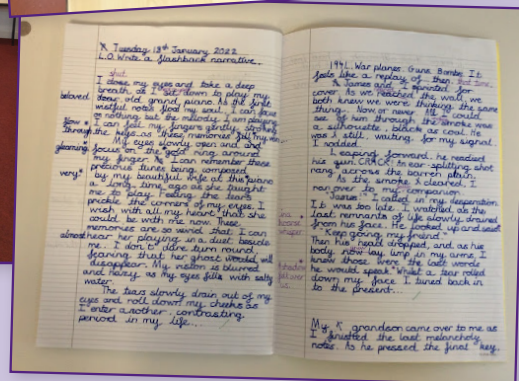 Tuesday 18th January 2022
L.O. Write a flashback narrative.
shut
I close my eyes and take a deep
breath, as I sit down to play my
beloved
dear old grand piano. As the first
wistful notes float my soul, I can focus
on nothing but the melody I am playing
Now I can feel my fingers gently stroking
through the keys as these memories fill my
My eyes slowly open and
gleaming
focus on the gold ring around
my finger. I can remember these
precious tunes being composed
very
by my beautiful wife at this piano
a long time ago as she taught
me to play. Feeling the tears
prickle the corners of my eyes, I
wish with all my heart that she
could be with me now. These
memories are so weird that I can
almost
hear her playing in a duet beside
me. I don't dare turn round
fearing that her ghost would
disappear. My vision is blurred
and hazy as my eyes fill with salty
water.
The tears slowly drain out of my
eyes and roll down my cheeks as
I enter another, contrasting
period in my life...
1941. War planes. Guns. Bombs. It
feels like a replay of then
James and I sprinted for
cover. As we reached the wall, we
both knew we were thinking the same
thing. Now or never. All I could
see of him through the smoke was
a silhouette, black as coal. He
was still waiting for my signal.
I nodded.
Leaping forward, he readied
his gun. CRACK! An ear-splitting shot
rang across the barren plain.
As the smoke cleared, I
ran over to my companion.
"James!" I called in my desperation.
It was too late. I watched as the
last remnants of life slowly drained
from his face. He looked up and said
"Keep going my friend"
Then his head dropped, and as his
body now lay limp in my arms, I
knew those were the last words
he would speak. Whilst a tear rolled
down my face I tuned back in
to the present...
My grandson came over to me as
I finished the last melancholy
notes. As he pressed the final key,